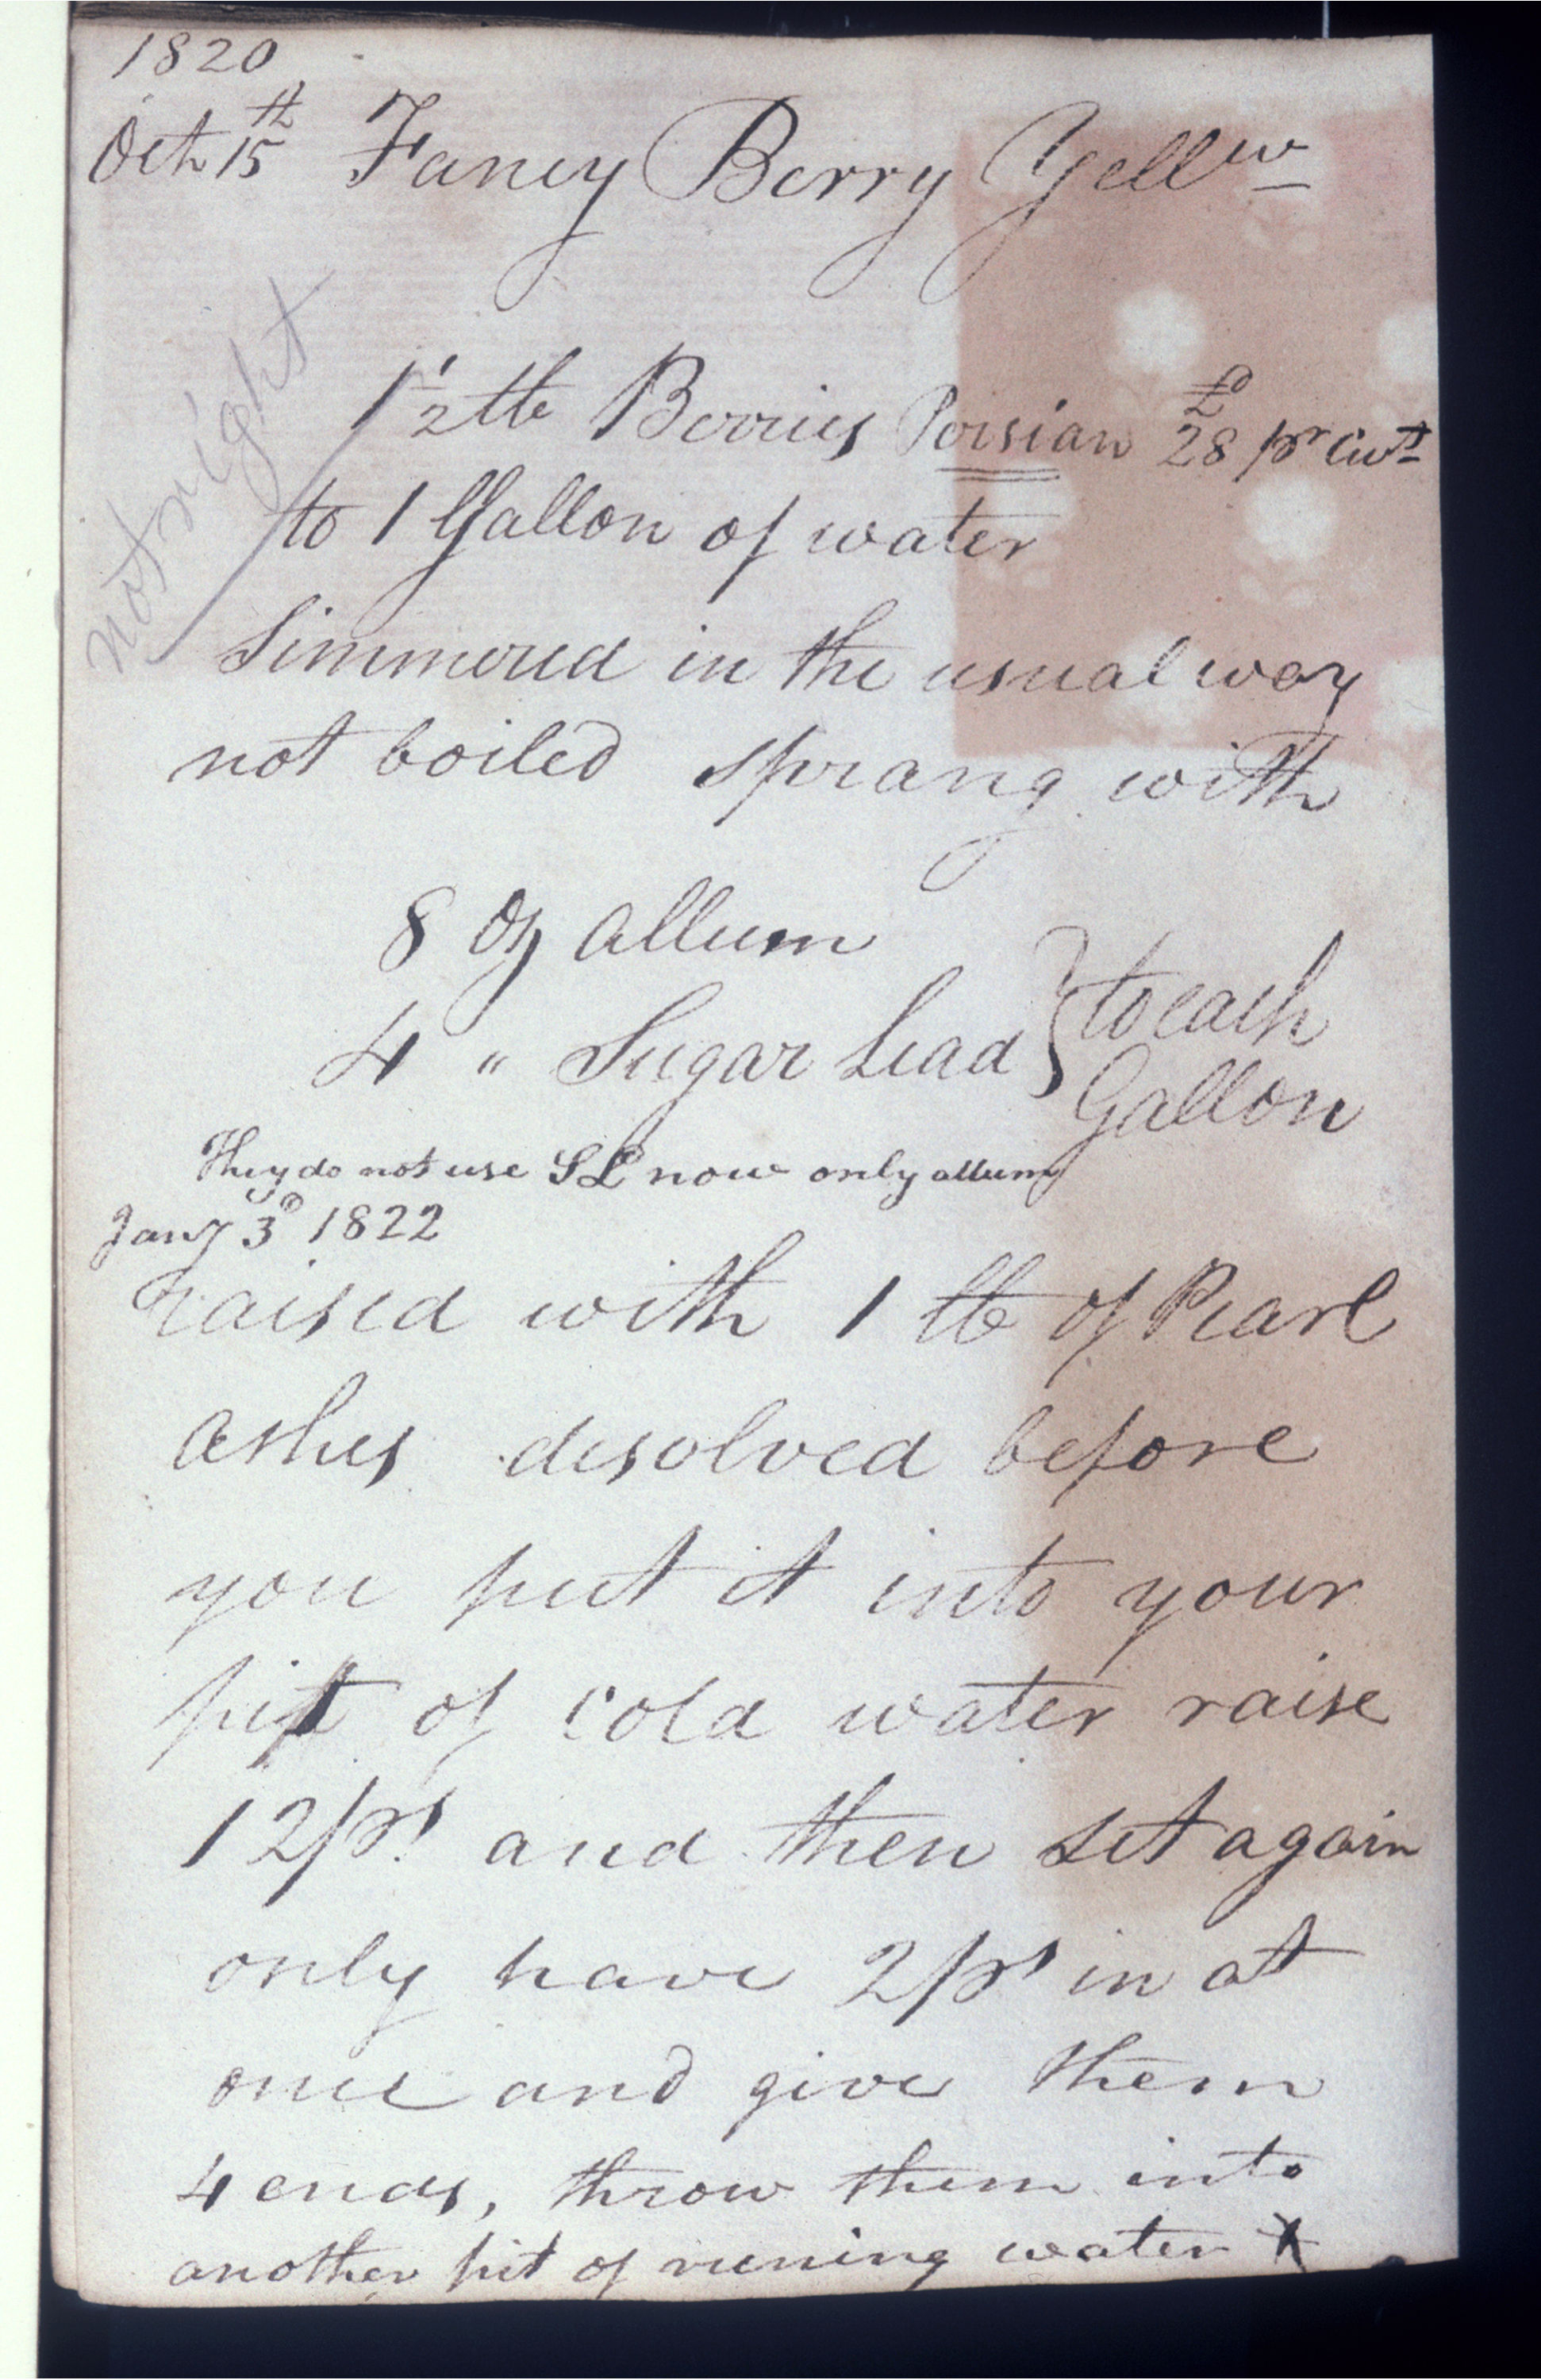 1820
Octr 15th Fancy Berry Yellw
not right
1 1/2 lb Berries Persian £28 pr Cwt
to 1 Gallon of water
Simmered in the usual way
not boiled sprang with
8 Oz Allum
4 " Sugar Lead } to each
Gallon
They do not use SL now only allum
Jany 3d 1822
raised with 1 lb of Pearl
Ashes desolved before
you put it into your
pit of cold water raise
12 ps and then set again
only have 2 ps in at
once and give them
4 ends, throw them into
another pit of runing water X